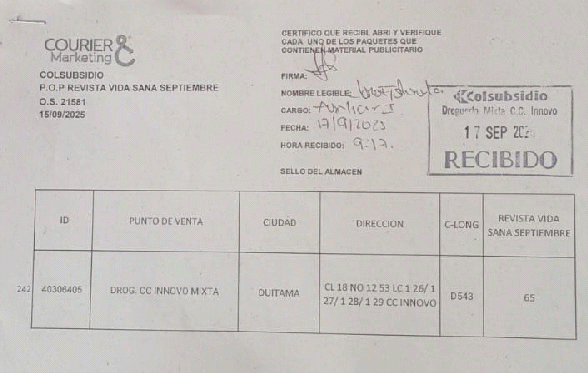 COURIER &
Marketing
COLSUBSIDIO
P.O.P REVISTA VIDA SANA SEPTIEMBRE
O.S. 21581
15/09/2025
CERTIFICO QUE RECIBI, ABRI Y VERIFIQUE
CADA UNO DE LOS PAQUETES QUE
CONTIENEN MATERIAL PUBLICITARIO
FIRMA:
NOMBRE LEGIBLE:
CARGO: Auxiliar I
FECHA: 17/9/2025
HORA RECIBIDO: 9:17.
SELLO DEL ALMACEN
Colsubsidio
Droguería Mixta C.C. Innovo
17 SEP 202
RECIBIDO
ID PUNTO DE VENTA CIUDAD DIRECCION C-LONG REVISTA VIDA SANA SEPTIEMBRE
242 40306405 DROG. CC INNOVO MIXTA DUITAMA CL 18 NO 12 53 LC 1 26/ 1 27/ 1 28/ 1 29 CC INNOVO D543 65